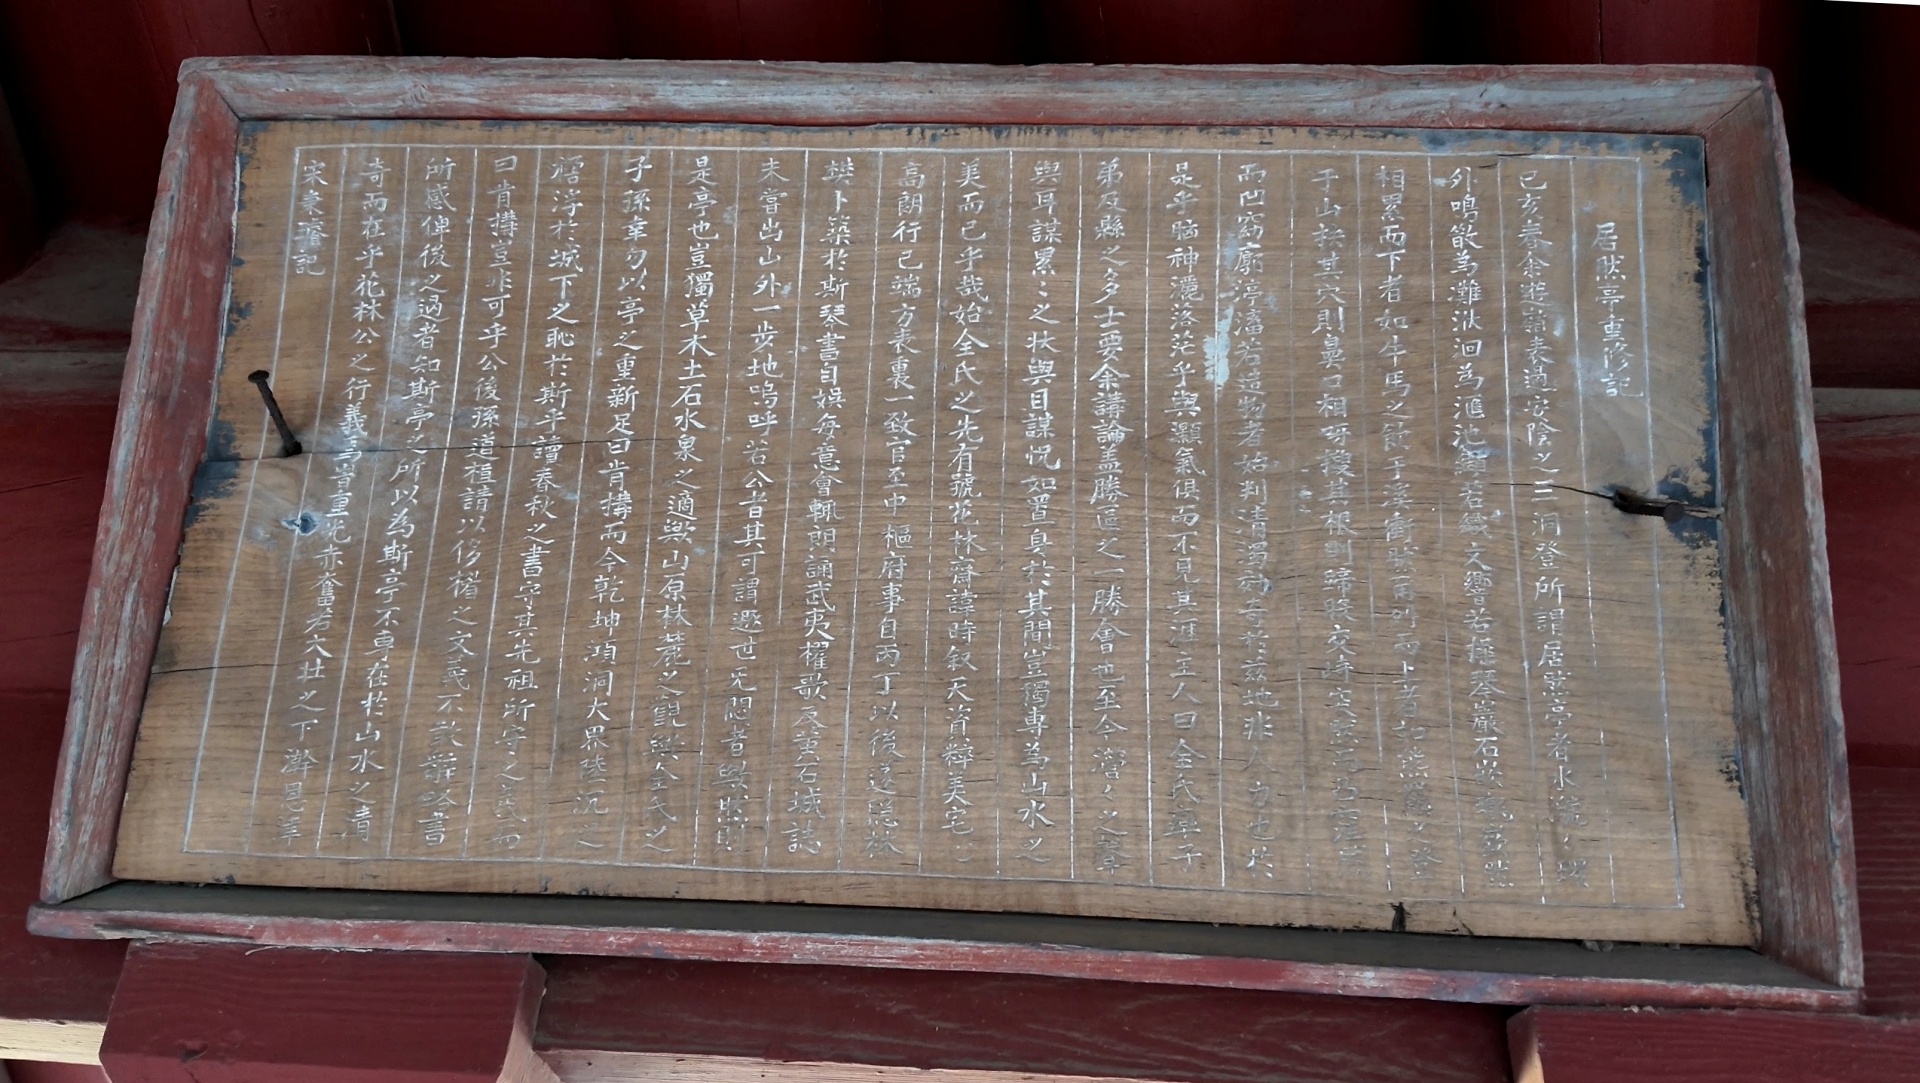 居然亭重修記
己亥春余遊嶺表過安陰之三洞登所謂居然亭者水㶁㶁
外鳴散為灘洑洄為滙池鋪若織文響若極琴巖石嶔
相累而下者如牛馬之飮于溪衝然角列而上者如熊羆之登
于山抉其穴則鼻口相呀搜其根則蹄股交峙突然
而凹窈廓渟滀若造物者始判淸濁効奇於玆地非人力也於
是乎腦神灑洛茫乎與灝氣俱而不見其涯主人曰全氏率子
弟及縣之多士要余講論盖勝區之一勝會也至今瀯瀯之聲
與耳謀累〻之狀與目謀怳如置身於其間豈獨專為山水之
美而已乎哉始全氏之先有號花林齋諱時叙天資粹美宅心
高朗行己端方表裏一致官至中樞府事自丙丁以後遂隱林
樊卜築於斯琴書自娛每意會輒朗誦武夷櫂歌及黃石城誌
未嘗出山外一步地嗚呼若公者其可謂遯世无悶者歟然則
是亭也豈獨草木土石水泉之適歟山原林麓之觀歟全氏之
子孫幸勿以亭之重新足曰肯搆而今乾坤澒洞大界陸沉之
滛於城下之恥於斯乎讀春秋之書守其先祖所守之義而
曰肯搆豈非可乎公後孫道植請以侈楣之文義不敢辭略書
所感俾後之過者知斯亭之所以為斯亭不專在於山水之淸
奇而在乎花林公之行義焉耳重光赤奮若大壯之下澣恩津
宋秉璿記